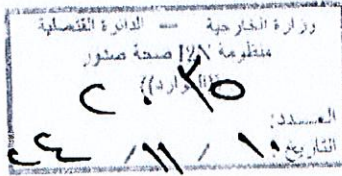 وزارة الخارجية — الدائرة القنصلية
منظومة I2N صحة صدور
((الوارد))
٢٠٣٥
العـــدد:
التاريخ: ١٠ / ١١ / ٢٤